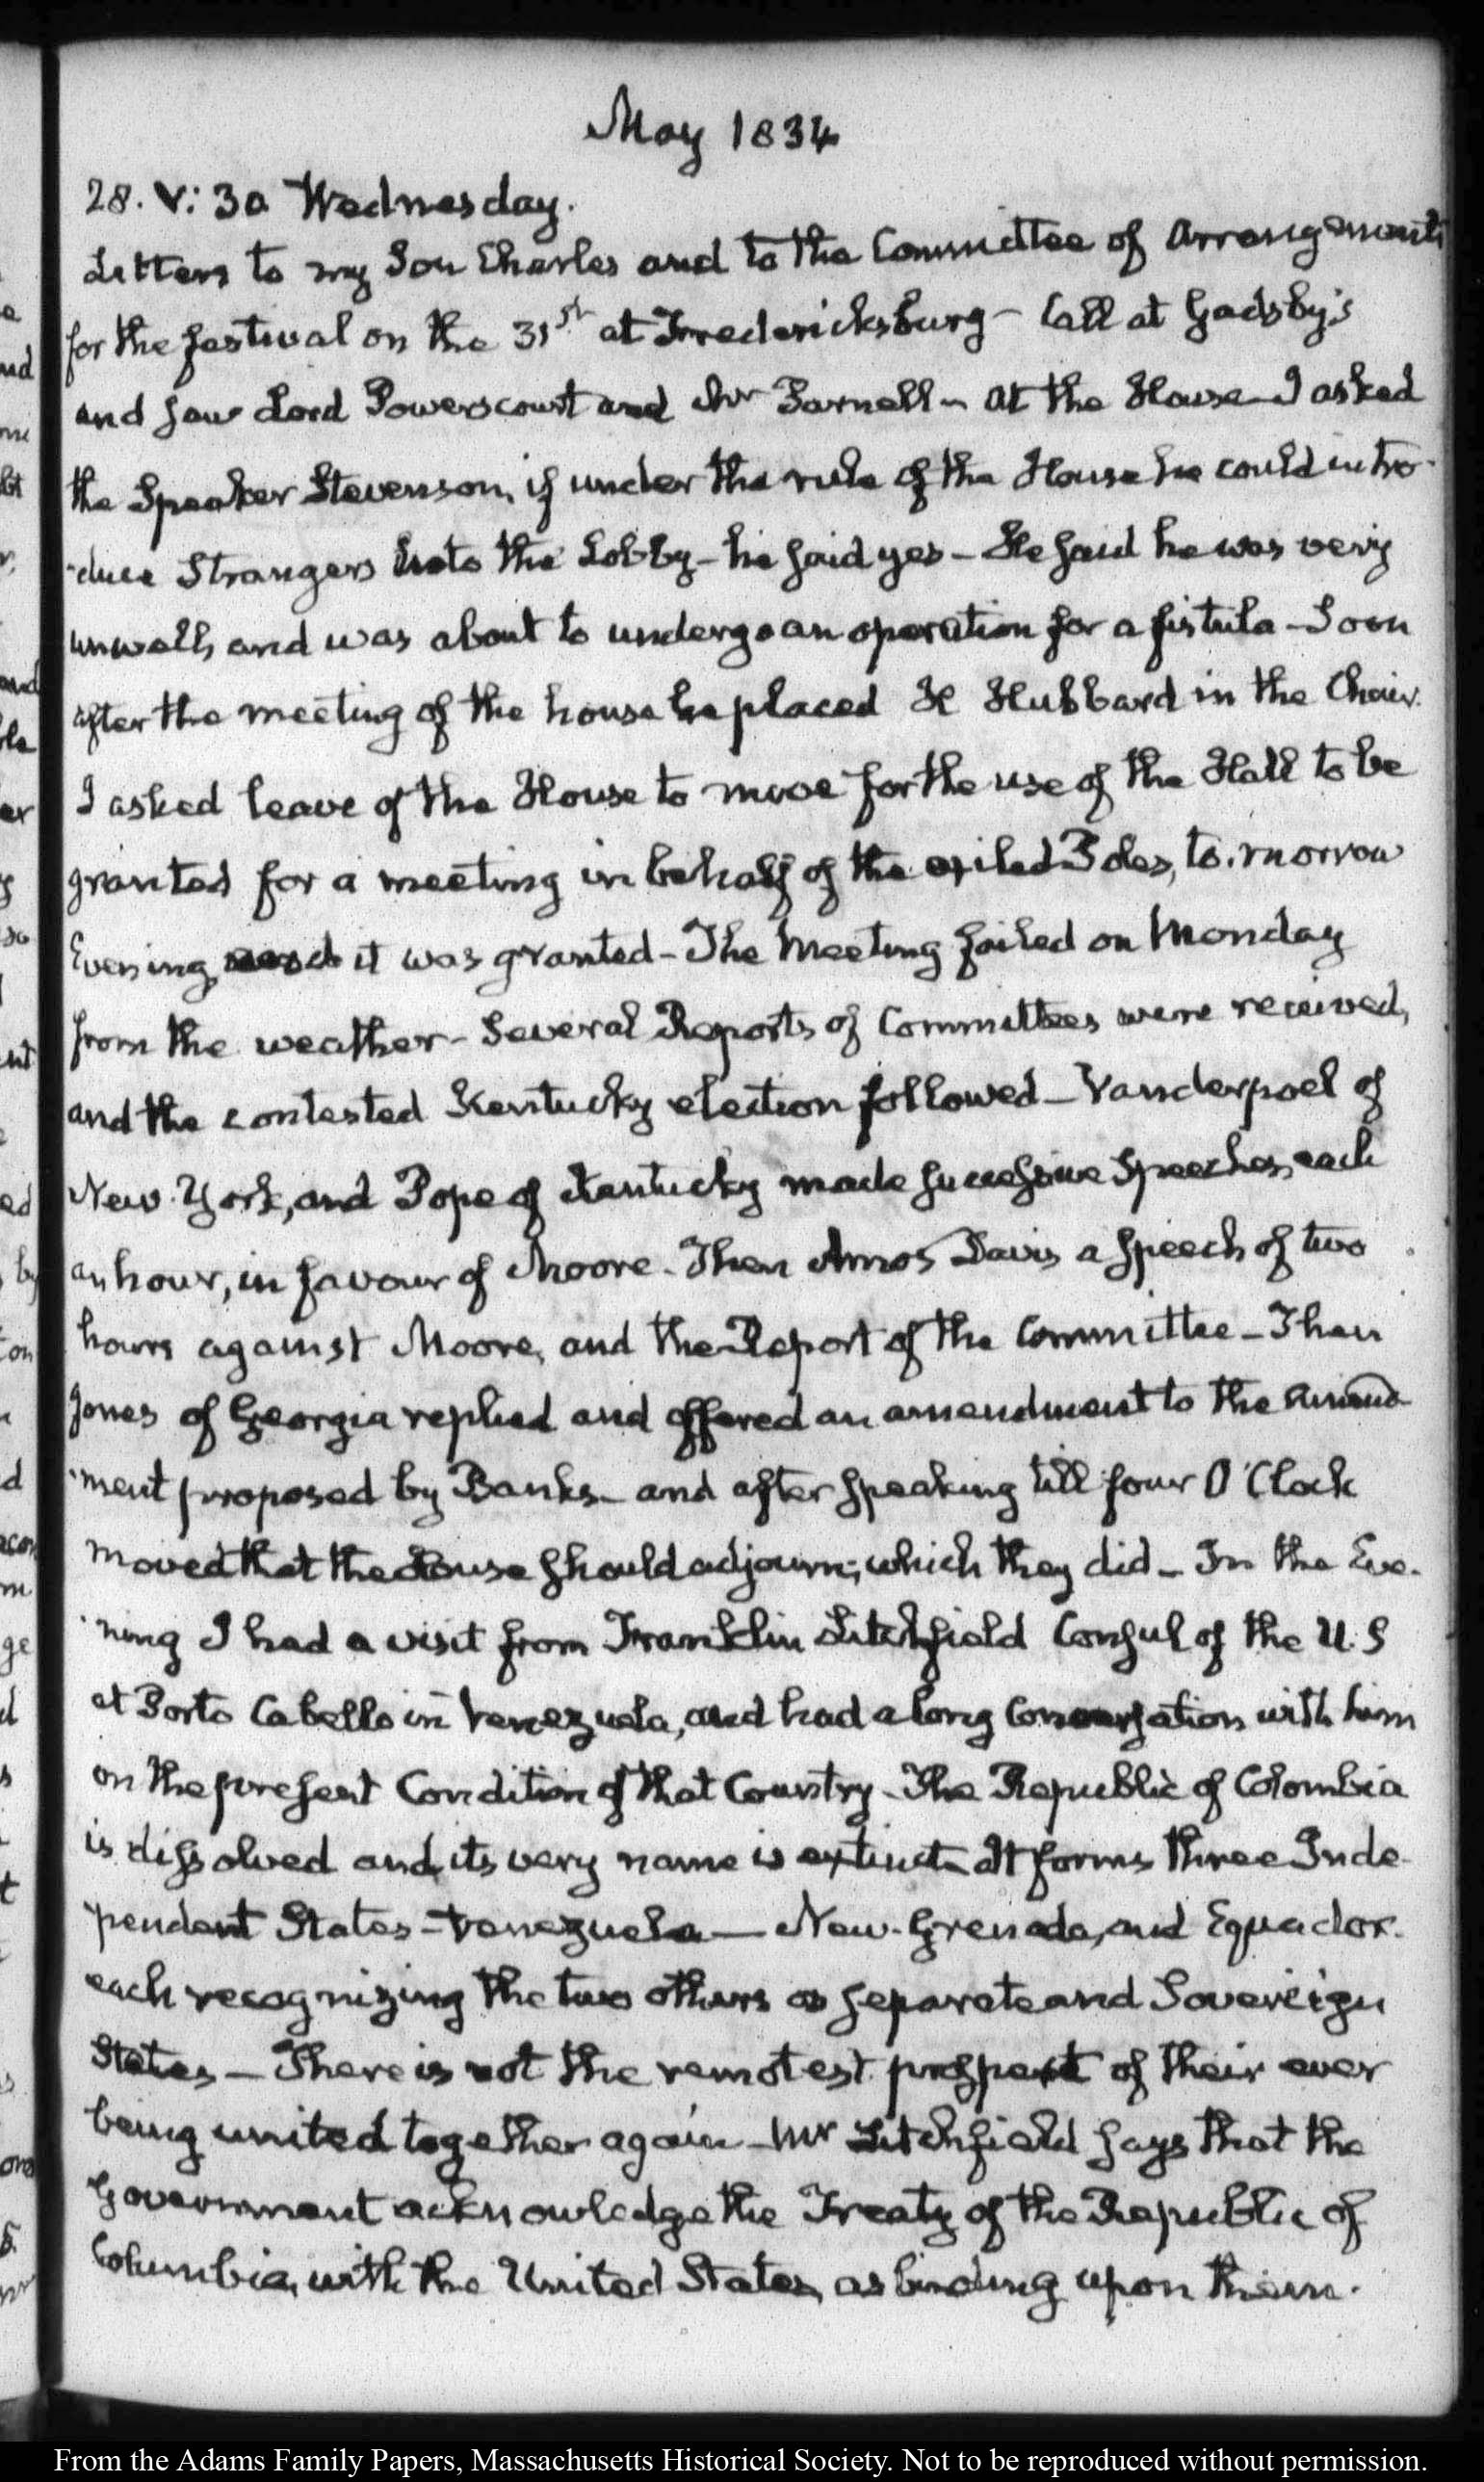 May 1834
28. V: 30 Wednesday.
Letters to my Son Charles and to the Committee of Arrangements
for the festival on the 31st at Fredericksburg – Call at Gadsby's
and saw Lord Powerscourt and Mr Parnell – At the House I asked
the Speaker Stevenson, if under the rule of the House he could intro-
-duce Strangers into the Lobby – he said yes – He said he was very
unwell, and was about to undergo an operation for a fistula – Soon
after the meeting of the house he placed H Hubbard in the Chair.
I asked leave of the House to move for the use of the Hall to be
granted for a meeting in behalf of the exiled Poles, to-morrow
Evening, and it was granted – The Meeting failed on Monday
from the weather – Several Reports of Committees were received,
and the contested Kentucky election followed – Vanderpoel of
New-York, and Pope of Kentucky made successive Speeches, each
an hour, in favour of Moore. Then Amos Davis a speech of two
hours against Moore, and the Report of the Committee – Then
Jones of Georgia replied and offered an amendment to the Amend-
-ment proposed by Banks – and after speaking till four O'Clock
moved that the House should adjourn; which they did – In the Eve-
-ning I had a visit from Franklin Litchfield Consul of the U.S
at Porto Cabello in Venezuela, and had a long Conversation with him
on the present Condition of that Country – The Republic of Colombia
is dissolved and its very name is extinct – It forms three Inde-
-pendent States – Venezuela — New-Grenada, and Equador.
each recognizing the two others as separate and Sovereign
States – There is not the remotest prospect of their ever
being united together again – Mr Litchfield says that the
Government acknowledge the Treaty of the Republic of
Columbia, with the United States, as binding upon them.
From the Adams Family Papers, Massachusetts Historical Society. Not to be reproduced without permission.